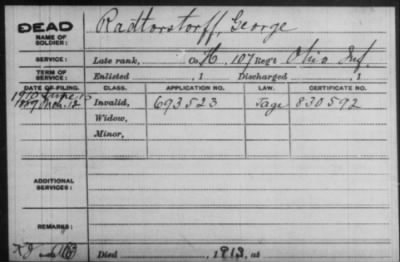 DEAD Radtorstorff, George
NAME OF
SOLDIER:
SERVICE: Late rank, Co. H, 107 Reg't Ohio Inf.
TERM OF
SERVICE: Enlisted , 1 Discharged , 1
DATE OF FILING. CLASS. APPLICATION NO. LAW. CERTIFICATE NO.
1889 12 Invalid, 693523 830592
Widow,
Minor,
ADDITIONAL
SERVICES:
REMARKS:
Died , 1913, at